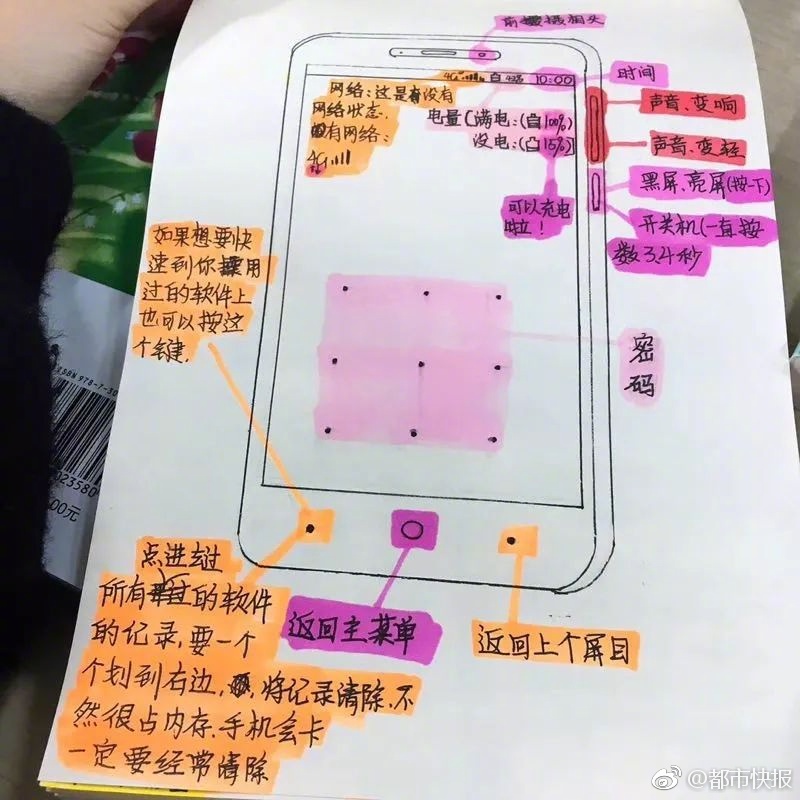 前摄相头
4G 白 43% 10:00
时间
网络:这是有没有
网络状态.
有网络:
4G
电量(满电:(白100%)
没电:(白15%)
可以充电
啦!
声音、变响
声音、变轻
黑屏、亮屏(按一下)
开关机(一直按
数34秒
如果想要快
速到你用
过的软件上
也可以按这
个键.
密
码
ISBN 978-7-30
023580
.00元
点进去过
所有的软件
的记录,要一个
个划到右边,将记录清除,不
然很占内存.手机会卡
一定要经常清除
返回主菜单
返回上个屏目
@都市快报